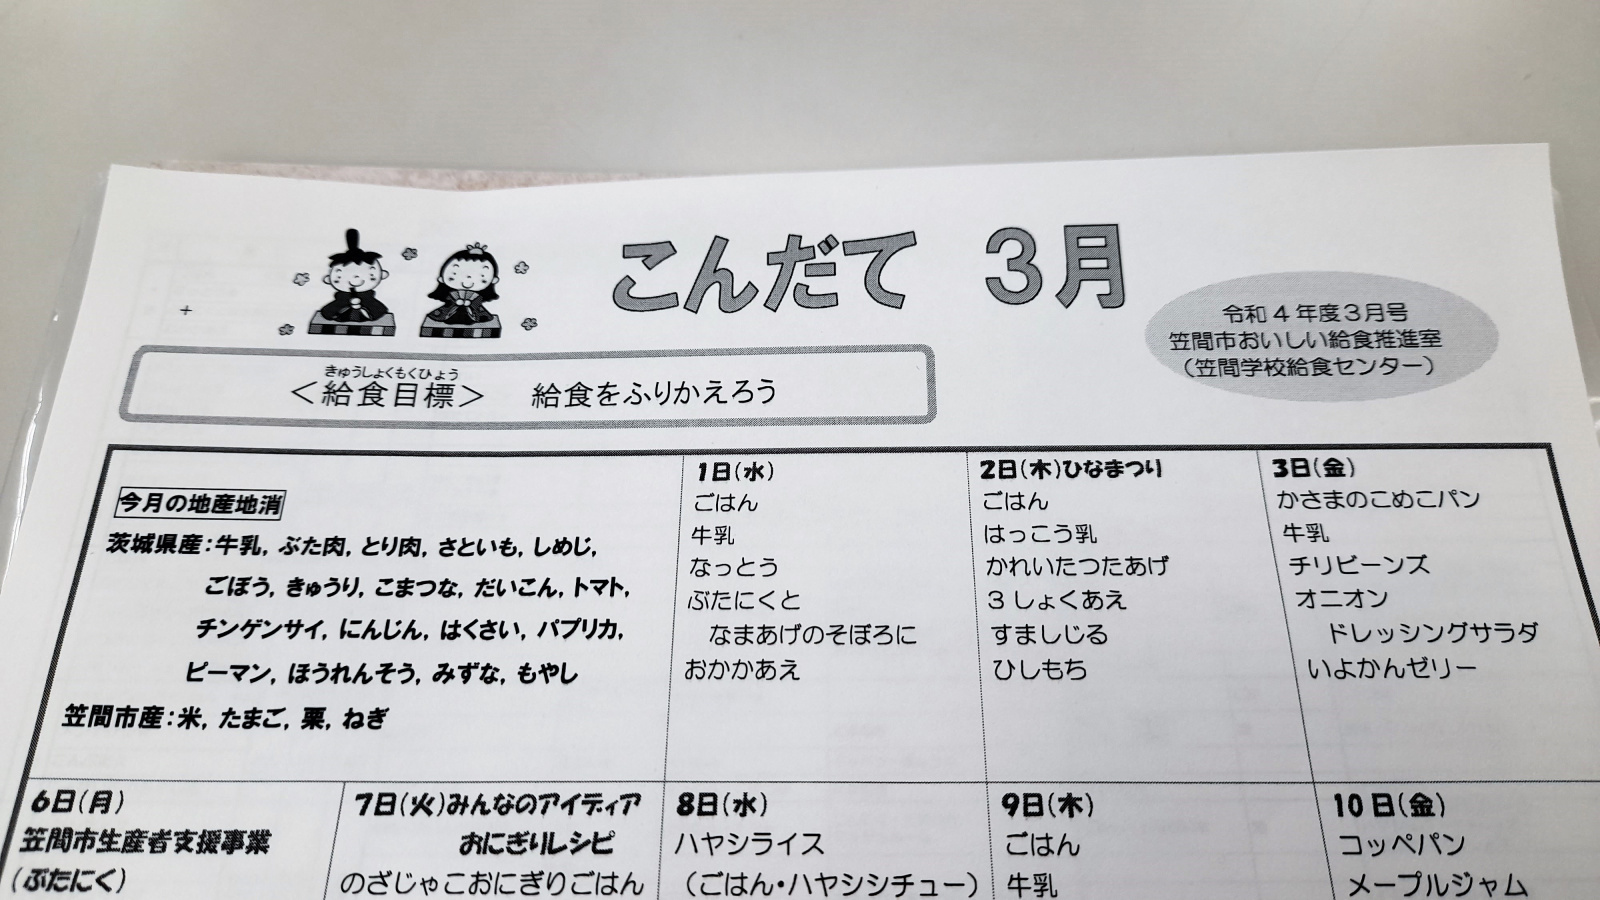 こんだて 3月
令和4年度3月号
笠間市おいしい給食推進室
（笠間学校給食センター）
きゅうしょくもくひょう
＜給食目標＞ 給食をふりかえろう
今月の地産地消
茨城県産：牛乳，ぶた肉，とり肉，さといも，しめじ，
ごぼう，きゅうり，こまつな，だいこん，トマト，
チンゲンサイ，にんじん，はくさい，パプリカ，
ピーマン，ほうれんそう，みずな，もやし
笠間市産：米，たまご，栗，ねぎ
1日（水）
ごはん
牛乳
なっとう
ぶたにくと
なまあげのそぼろに
おかかあえ
2日（木）ひなまつり
ごはん
はっこう乳
かれいたつたあげ
3しょくあえ
すましじる
ひしもち
3日（金）
かさまのこめこパン
牛乳
チリビーンズ
オニオン
ドレッシングサラダ
いよかんゼリー
6日（月）
笠間市生産者支援事業
（ぶたにく）
7日（火）みんなのアイディア
おにぎりレシピ
のざじゃこおにぎりごはん
8日（水）
ハヤシライス
（ごはん・ハヤシシチュー）
9日（木）
ごはん
牛乳
10日（金）
コッペパン
メープルジャム